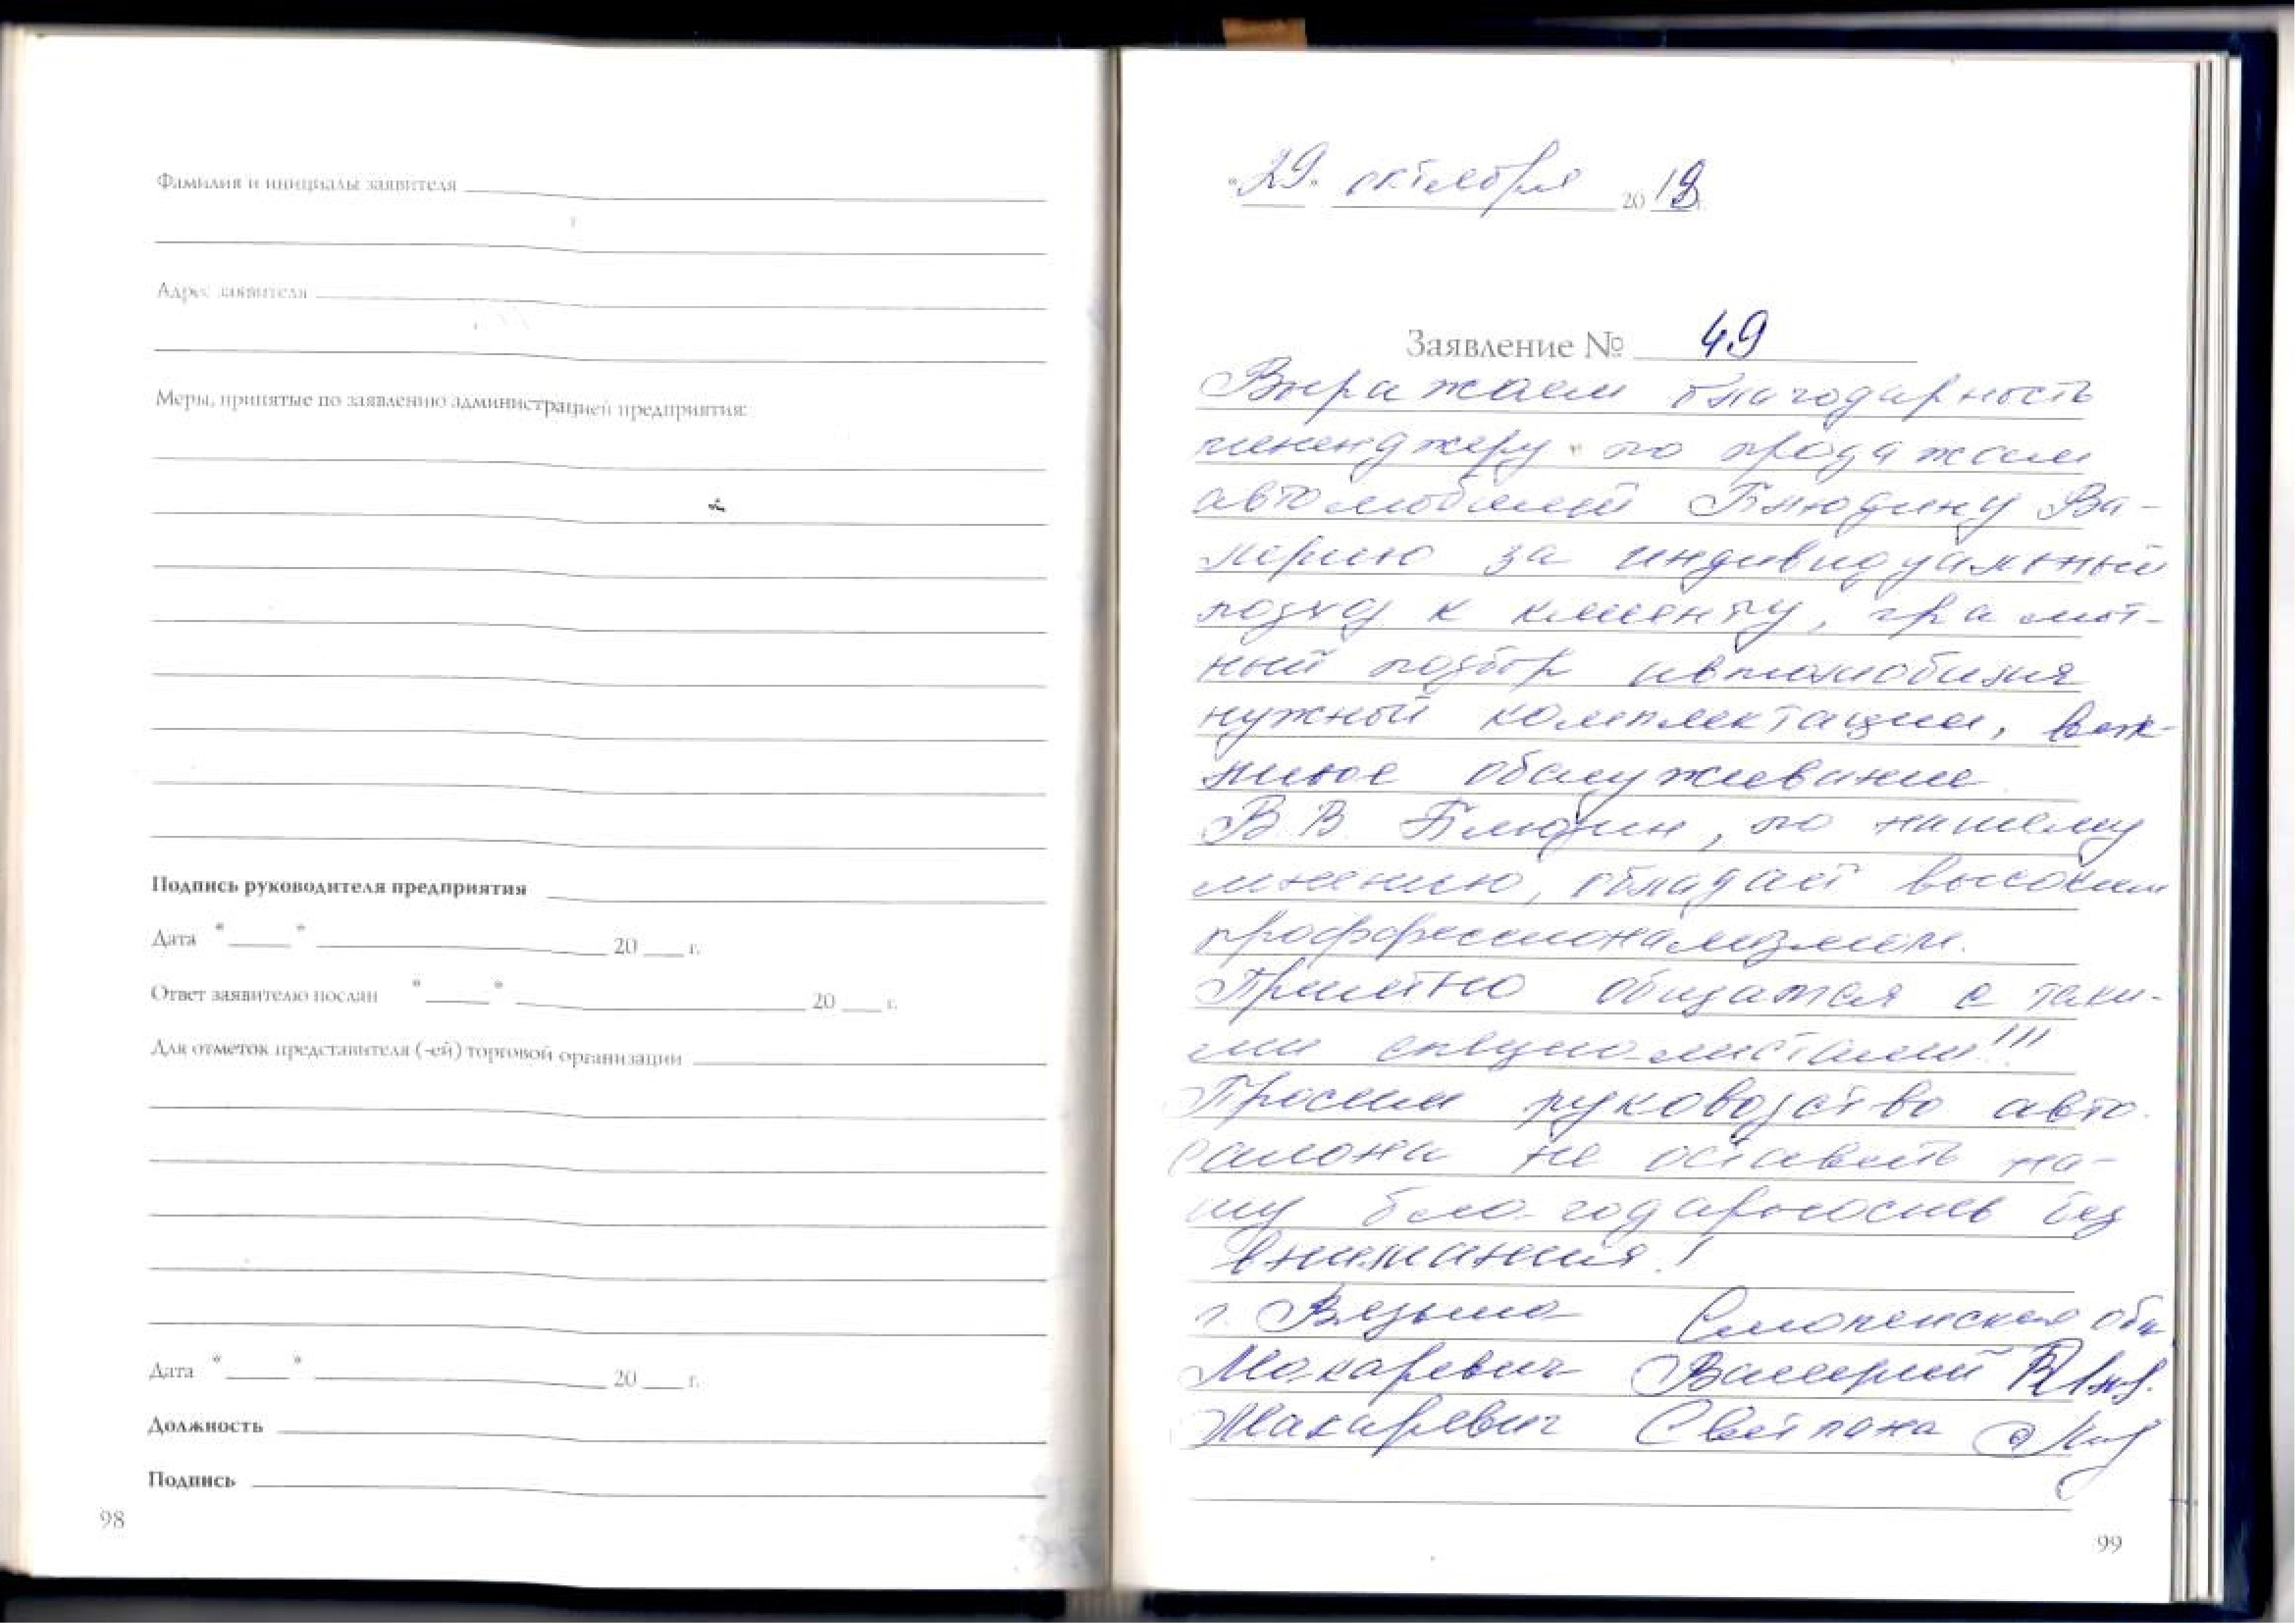 Фамилия и инициалы заявителя
Адрес заявителя
Меры, принятые по заявлению администрацией предприятия:
Подпись руководителя предприятия
Дата "___" ___ 20 ___ г.
Ответ заявителю послан "___" ___ 20 ___ г.
Для отметок представителя (-ей) торговой организации
Дата "___" ___ 20 ___ г.
Должность
Подпись
98
"29" октября 2018 г.
Заявление № 49
Выражаем благодарность
менеджеру по продажам
автомобилей Блюдину Ва-
лерию за индивидуальный
подход к клиенту, грамот-
ный подбор автомобиля
нужной комплектации, веж-
ливое обслуживание
В.В. Блюдин, по нашему
мнению, обладает высоким
профессионализмом.
Приятно общаться с таки-
ми специалистами!!!
Просим руководство авто-
салона не оставить на-
шу благодарность без
внимания!
г. Вязьма Смоленская обл
Макаревич Валерий
Макаревич Светлана
99